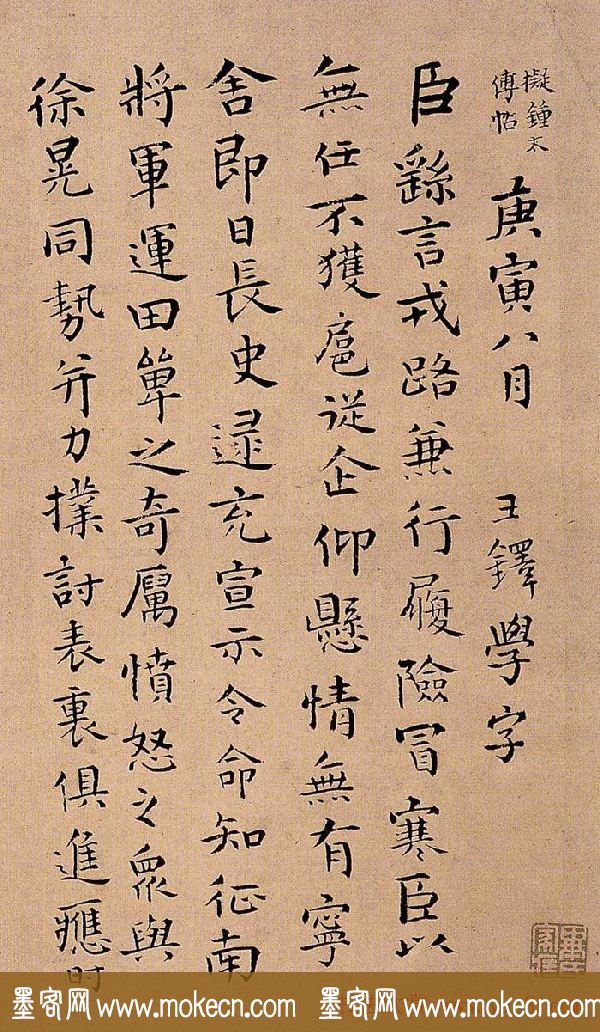 擬鍾太
傅帖
庚寅八月 王鐸學字
臣繇言戎路兼行履險冒寒臣以
無任不獲扈從企仰懸情無有寧
舍即日長史逯充宣示令命知征南
將軍運田單之奇厲憤怒之眾與
徐晃同勢并力撲討表裏俱進應時
墨客网 www.mokecn.com 墨客网 www.mokecn.com